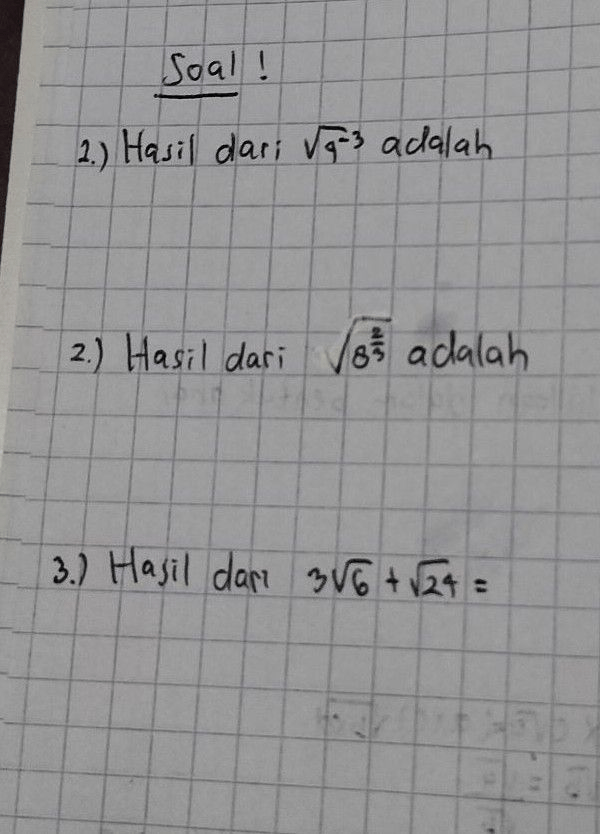 Soal !
2.) Hasil dari √9⁻³ adalah
2.) Hasil dari √8^(2/3) adalah
3.) Hasil dari 3√6 + √24 =